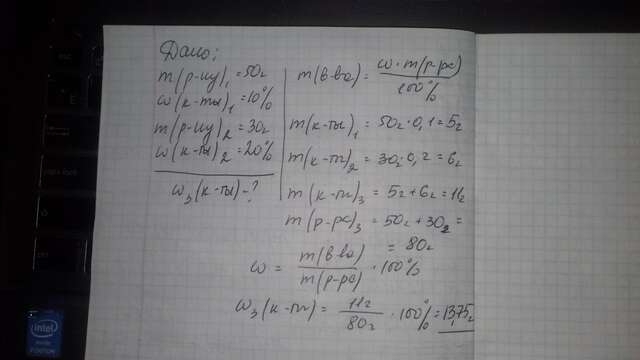 Дано:
m(р-ну)₁ = 50г
ω(к-ты)₁ = 10%
m(р-ну)₂ = 30г
ω(к-ты)₂ = 20%
ω₃(к-ты) - ?
m(в-ва) = ω · m(р-ра) / 100%
m(к-ты)₁ = 50г · 0,1 = 5г
m(к-ты)₂ = 30г · 0,2 = 6г
m(к-ты)₃ = 5г + 6г = 11г
m(р-ра)₃ = 50г + 30г =
= 80г
ω = m(в-ва) / m(р-ра) · 100%
ω₃(к-ты) = 11г / 80г · 100% = 13,75г
intel
inside